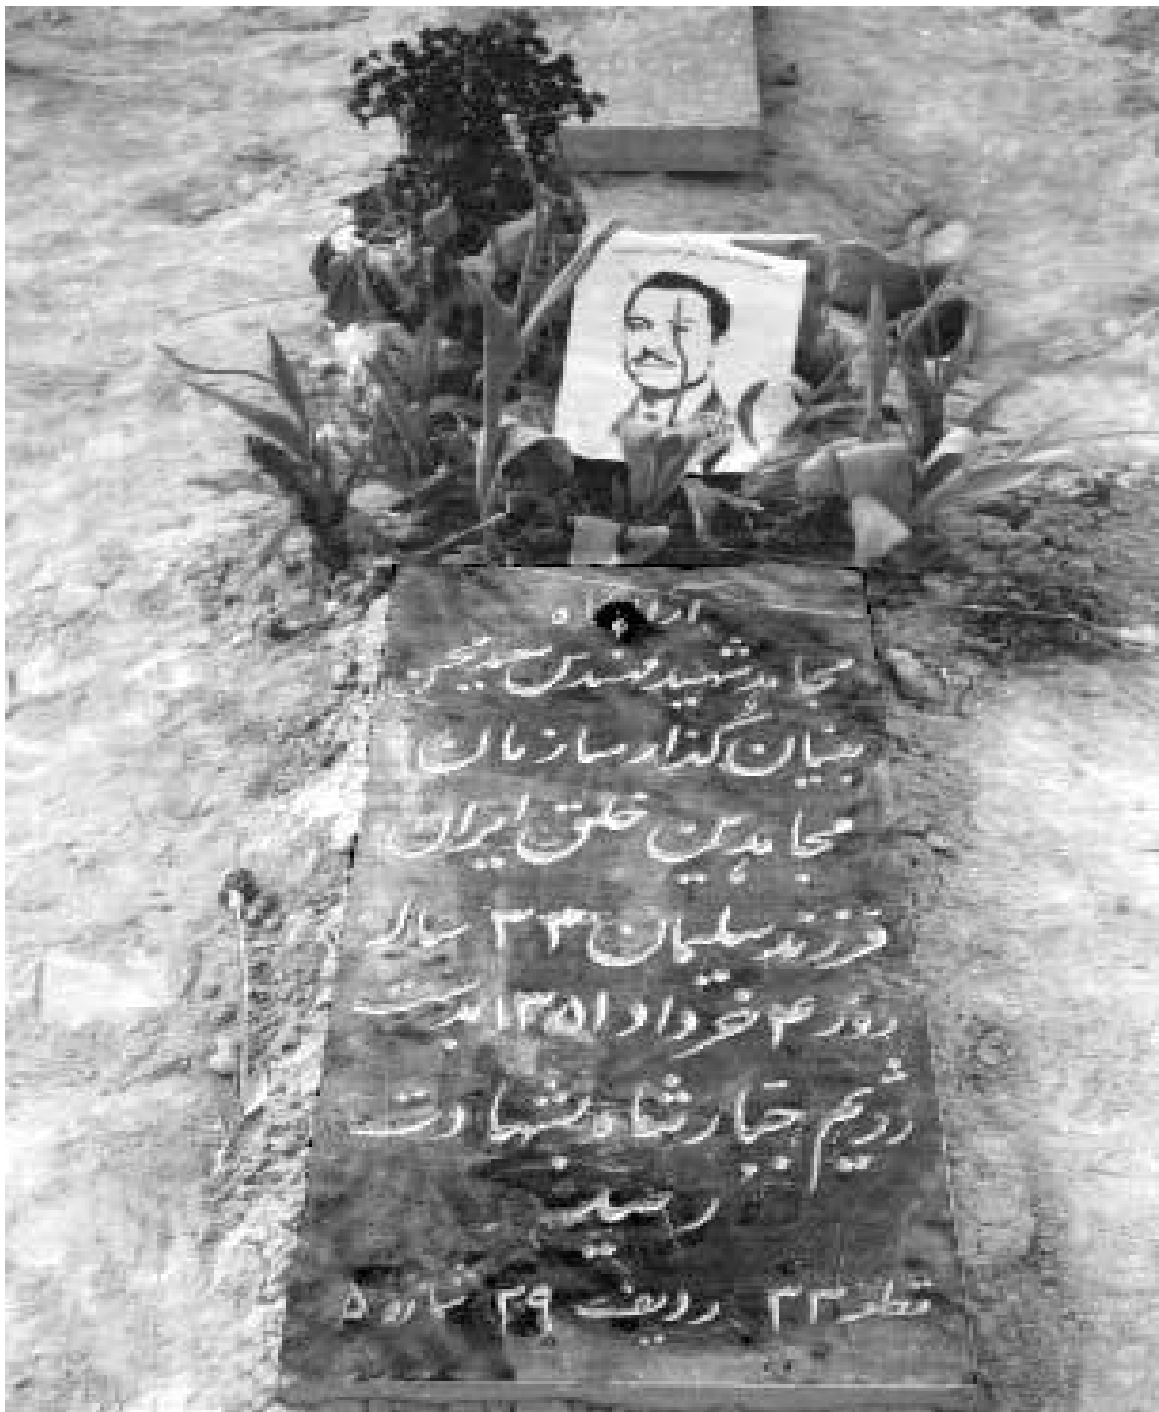 آرامگاه
مجاهد شهید مهندس سعید محسن
بنیان گذار سازمان
مجاهدین خلق ایران
فرزند سلیمان ۳۳ ساله
روز ۴ خرداد ۱۳۵۱ بدست
رژیم جبار شاه بشهادت
رسید
قطعه ۳۳ ردیف ۲۹ شماره ۵